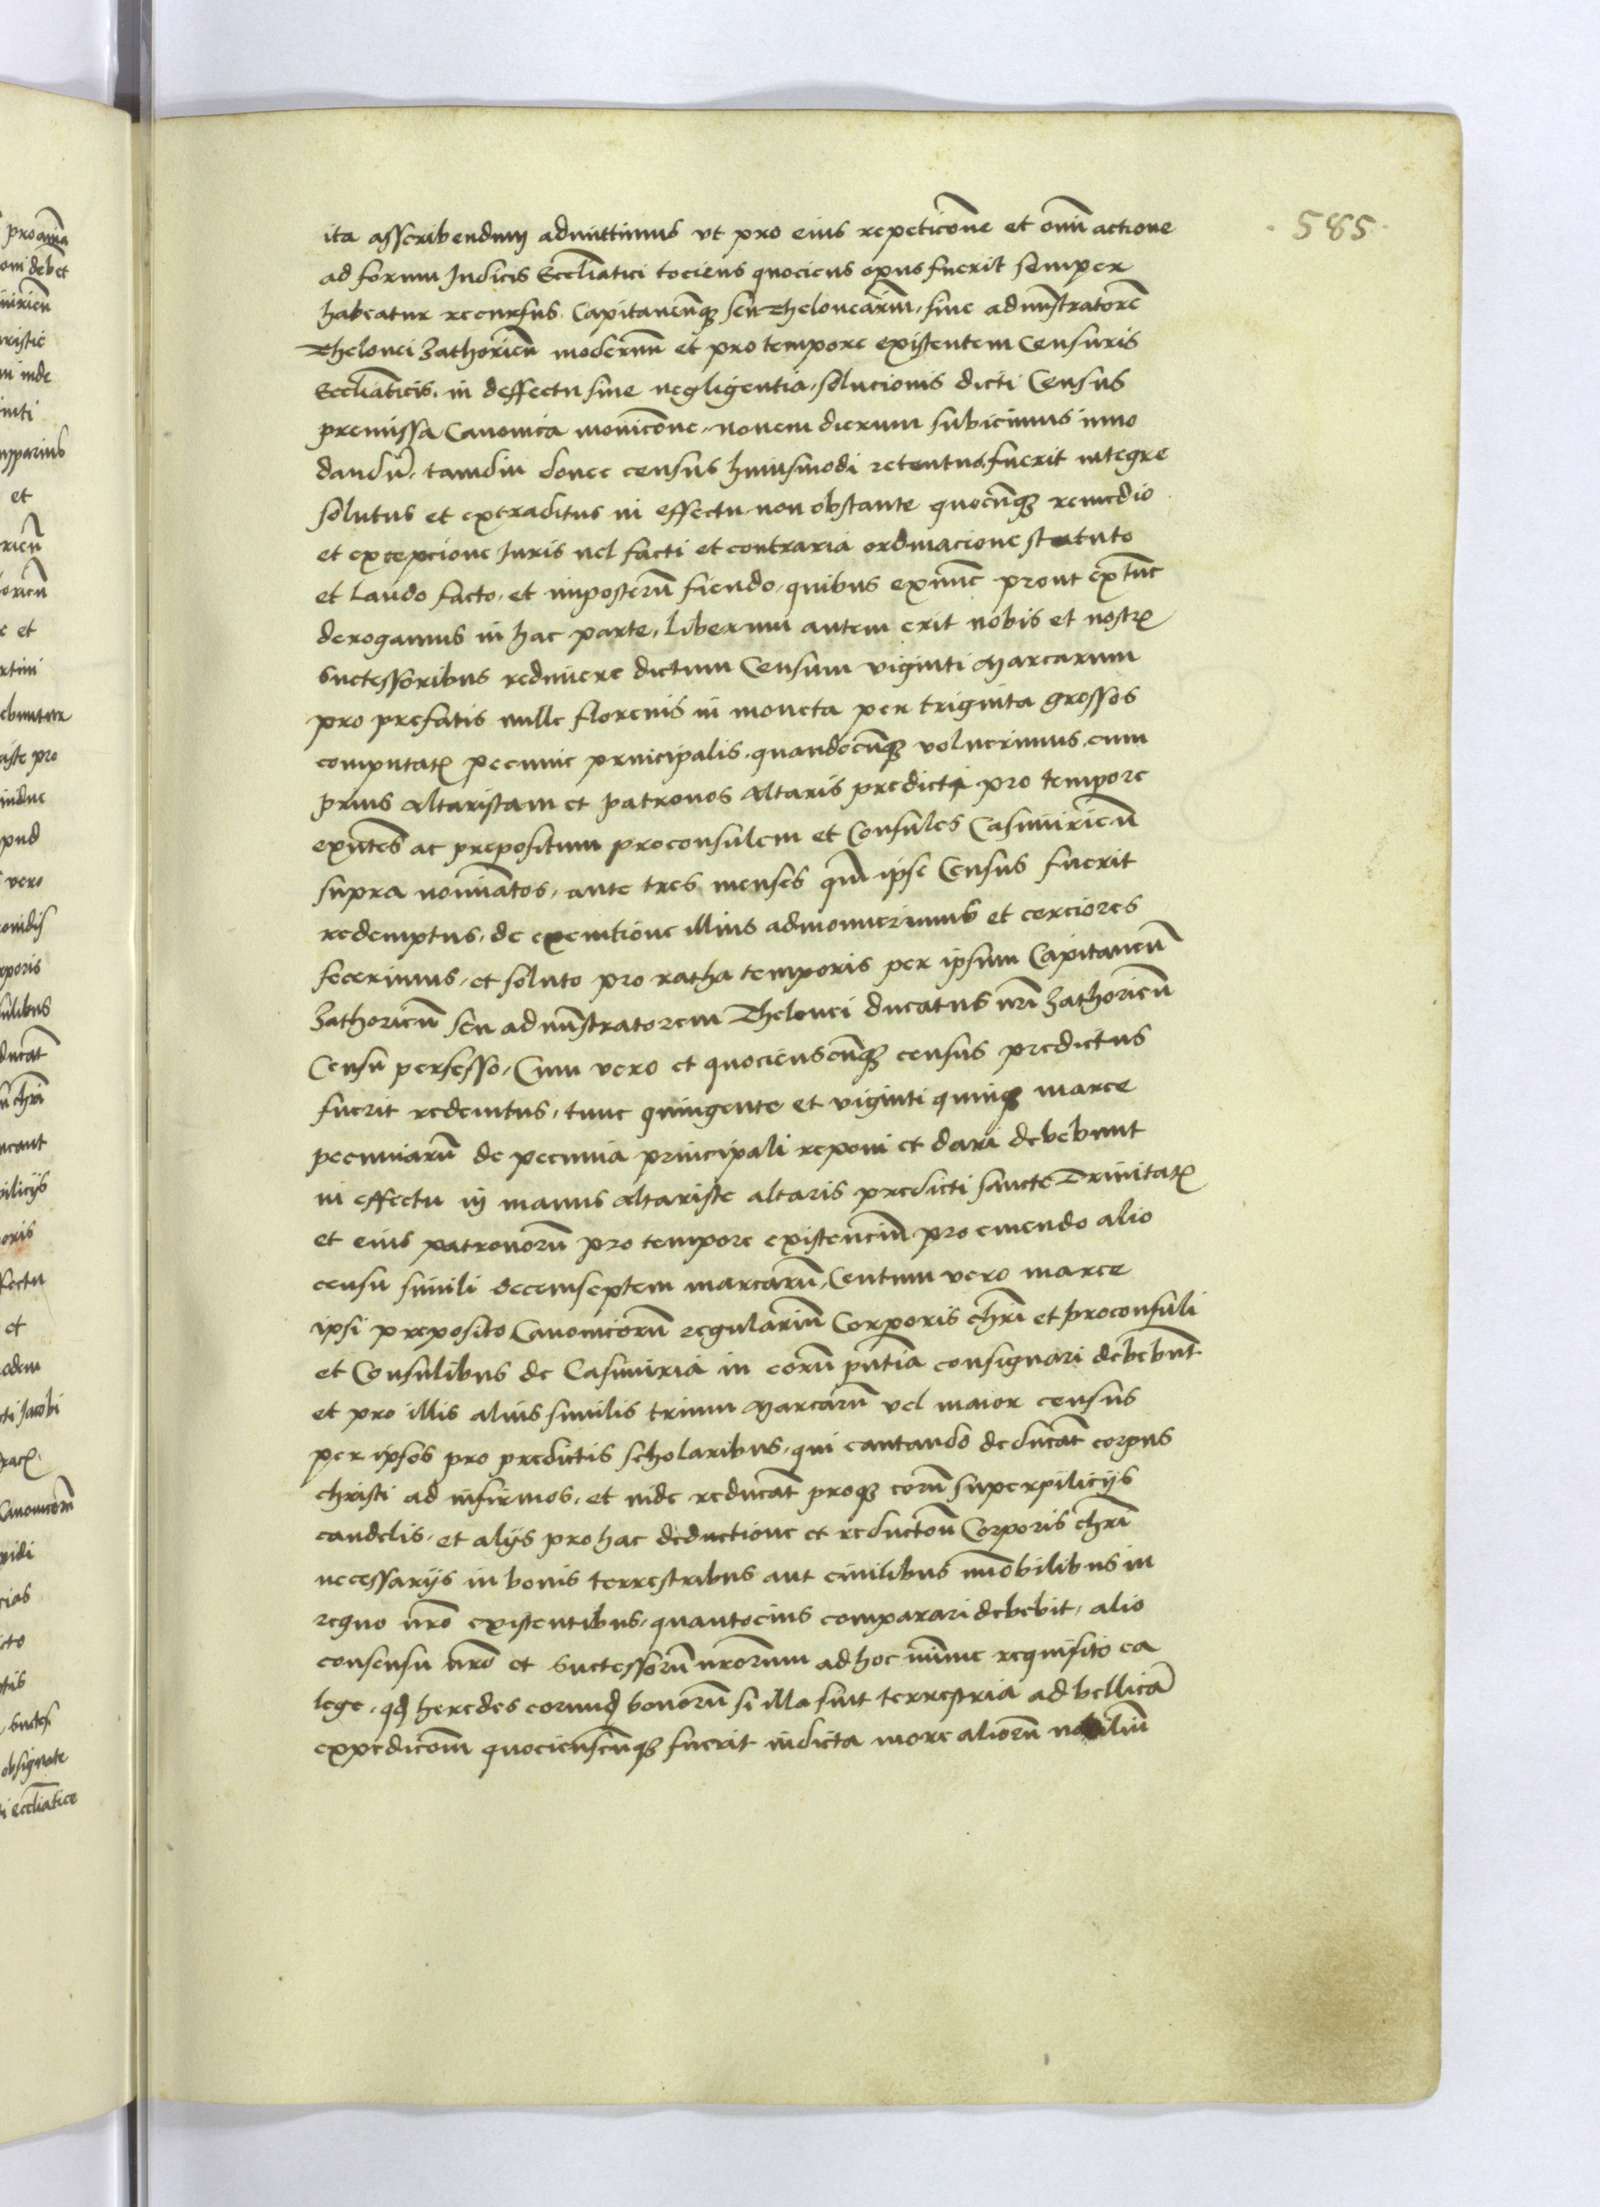 585
ita asscribendum admittimus vt pro eius repeticōne et omī actione
ad forum Judicis Eccliatici tociens quociens opus fuerit semper
habeatur recursus. Capitaneumqꝫ seu theloneariū, siue admīstratorē
Thelonei Zathorieñ modernū et pro tempore existentem Censuris
Eccliaticis, in deffectu siue negligentia, solucionis dicti Census
premissa Canonica monicōne, nouem dierum subicimus inno
dandū, tamdiu donec census huiusmodi retentus fuerit integre
solutus et extraditus in effectu non obstante quocūqꝫ remedio
et excepcione Juris uel facti et contraria ordinacione statuto
et Laudo facto, et imposterū fiendo, quibus exnūc prout extūc
derogamus in hac parte, Liberum autem erit nobis et nostrꝭ
Successoribus redimere dictum Censum viginti Marcarum
pro prefatis mille florenis in moneta per triginta grossos
computatꝭ pecunie principalis, quandocūqꝫ voluerimus, cum
prius Altaristam et patronos Altaris predicti pro tempore
exn̄tes ac prepositum proconsulem et Consules Casimirieñ
supra noīatos, ante tres menses qm̄ ipse Census fuerit
redemptus, de exemtione illius admonuerimus et cerciores
fecerimus, et soluto pro ratha temporis per ipsum Capitaneū
Zathorieñ seu admīstratorem Thelonei ducatus nr̄i Zathorieñ
Censu persesso, Cum vero et quocienscūqꝫ census predictus
fuerit redemtus, tunc quingente et viginti quinqꝫ marce
pecuniarū de pecunia principali reponi et dari debebunt
in effectu in manus Altariste altaris predicti sancte Trinitatꝭ
et eius patronorū pro tempore existenciū pro emendo alio
censu simili decemseptem marcarū, Centum vero marce
ipsi preposito Canonicorū regulariū Corporis chr̄i et proconsuli
et Consulibus de Casimiria in eorū pn̄tia consignari debebūt
et pro illis alius similis trium Marcarū vel maior census
per ipsos pro predictis scholaribus, qui cantando deducāt corpus
christi ad infirmos, et inde reducāt proqꝫ eorū superpilicijs
candelis, et alijs pro hac deductione et reductoñ Corporis chr̄i
necessarijs in bonis terrestribus aut ciuilibus īmobilibus in
regno nr̄o existentibus, quantocius comparari debebit, alio
consensu nr̄o et Successorū nr̄orum ad hoc mīme requisito ea
lege, qđ heredes eorumđ bonorū si illa sint terrestria ad bellicā
expedicōm quocienscūqꝫ fuerit indicta more aliorū nobiliū